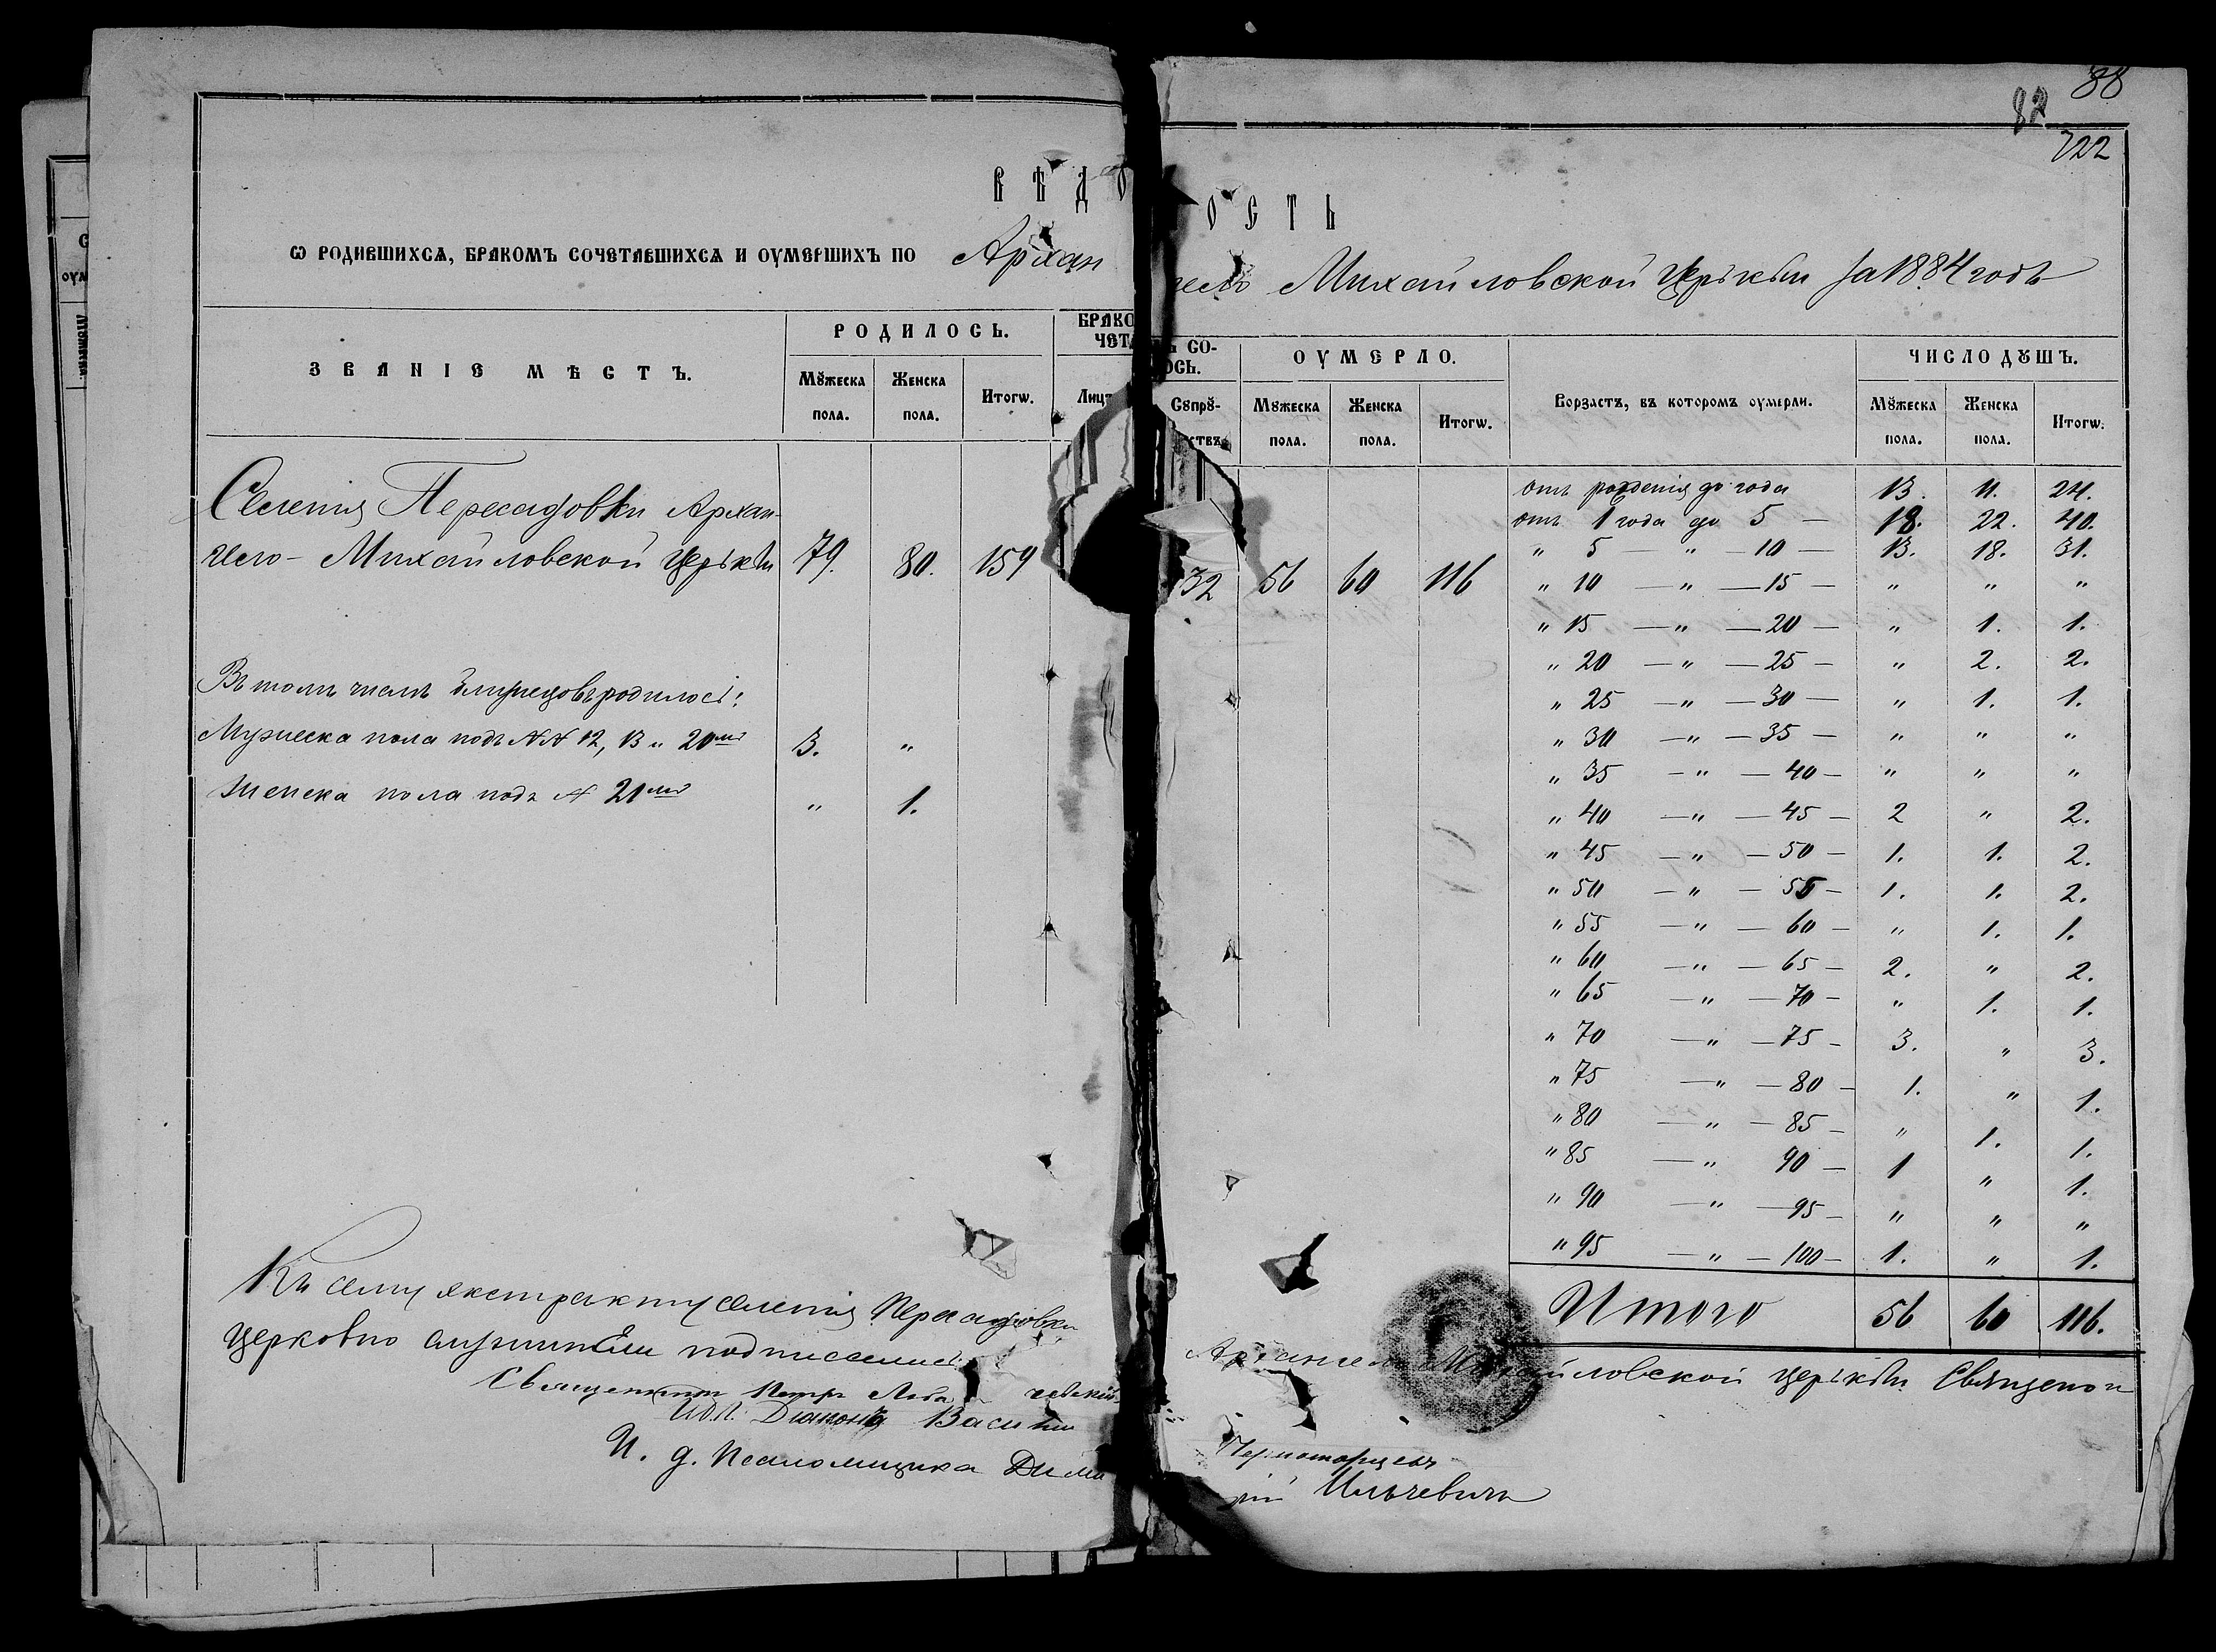 88
82
722
ВѢДО ОСТЬ
Ѡ РОДИВШИХСѦ, БРАКОМЪ СОЧЕТАВШИХСѦ И ОУМЕРШИХЪ ПО Архан гело Михайловской Церькви за 1884 годъ
ЗВАНІЕ МѢСТЪ.
РОДИЛОСЬ.
Мꙋжеска пола.
Женска пола.
Итогѡ.
БРАКО Ъ СО-
ЧЕТА ОСЬ.
Лицъ
Сꙋпрꙋ-
ствъ
ОУМЕРЛО.
Мꙋжеска пола.
Женска пола.
Итогѡ.
Ворзастъ, въ которомъ оумерли.
ЧИСЛО ДꙊШЪ.
Мꙋжеска пола.
Женска пола.
Итогѡ.
Селенія Пересадовки Архан-
гело-Михайловской Церькви 79. 80. 159 32 56 60 116
Въ томъ числѣ близнецовъ родилось:
Мужеска пола подъ №№ 12, 13 и 20мъ 3. "
Женска пола подъ № 21мъ " 1.
отъ рожденія до года 13. 11. 24.
отъ 1 года до 5 — 18. 22. 40.
" 5 — " — 10 — 13. 18. 31.
" 10 — " — 15 — " " "
" 15 — " — 20 — " 1. 1.
" 20 — " — 25 — " 2. 2.
" 25 — " — 30 — " 1. 1.
" 30 — " — 35 — " " "
" 35 — " — 40 — " " "
" 40 — " — 45 — 2 " 2.
" 45 — " — 50 — 1. 1. 2.
" 50 — " — 55 — 1. 1. 2.
" 55 — " — 60 — " 1. 1.
" 60 — " — 65 — 2. " 2.
" 65 — " — 70 — " 1. 1.
" 70 — " — 75 — 3. " 3.
" 75 — " — 80 — 1. " 1.
" 80 — " — 85 — " 1. 1.
" 85 — " 90 — 1 " 1.
" 90 — " — 95 — " " "
" 95 — " — 100 — 1. " 1.
Итого 56 60 116.
Къ сему экстракту селенія Пересадовки Архангело Михайловской церькви Священно и
церковно служители подписались:
Священникъ Петръ
Діаконъ Василій Черноморцевъ
И. д. Псаломщика Дими рій Ильчевичъ